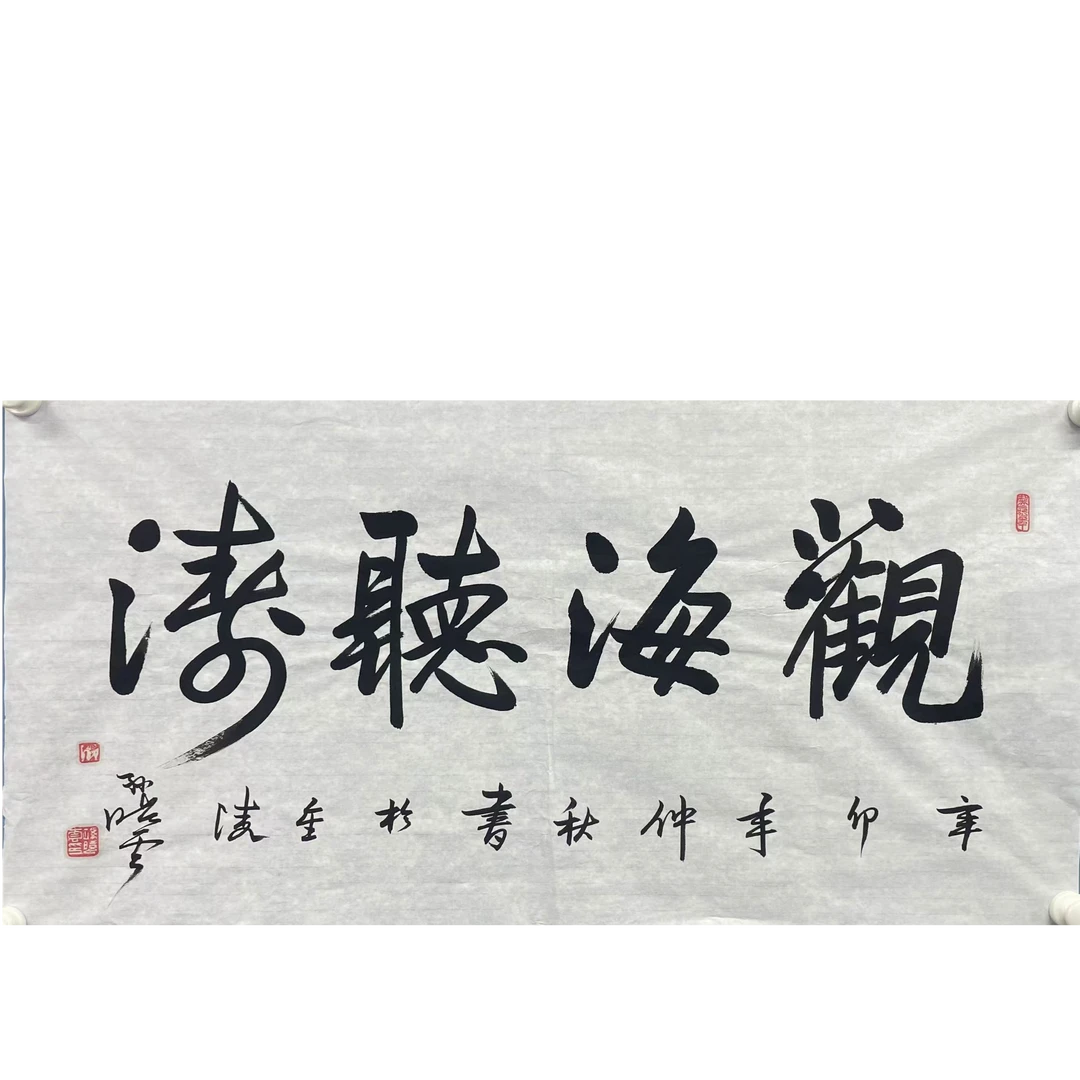 觀海聽濤
辛卯年仲秋書於金陵
孫曉雲